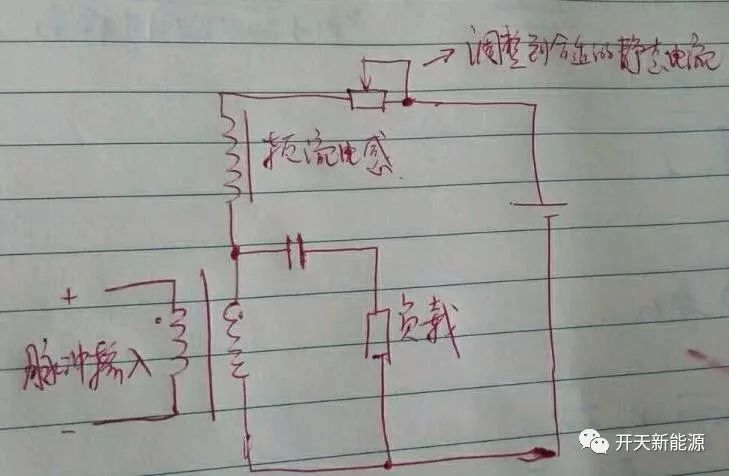 →调整到合适的静态电流
扼流电感
+
脉冲输入
-
负载
开天新能源